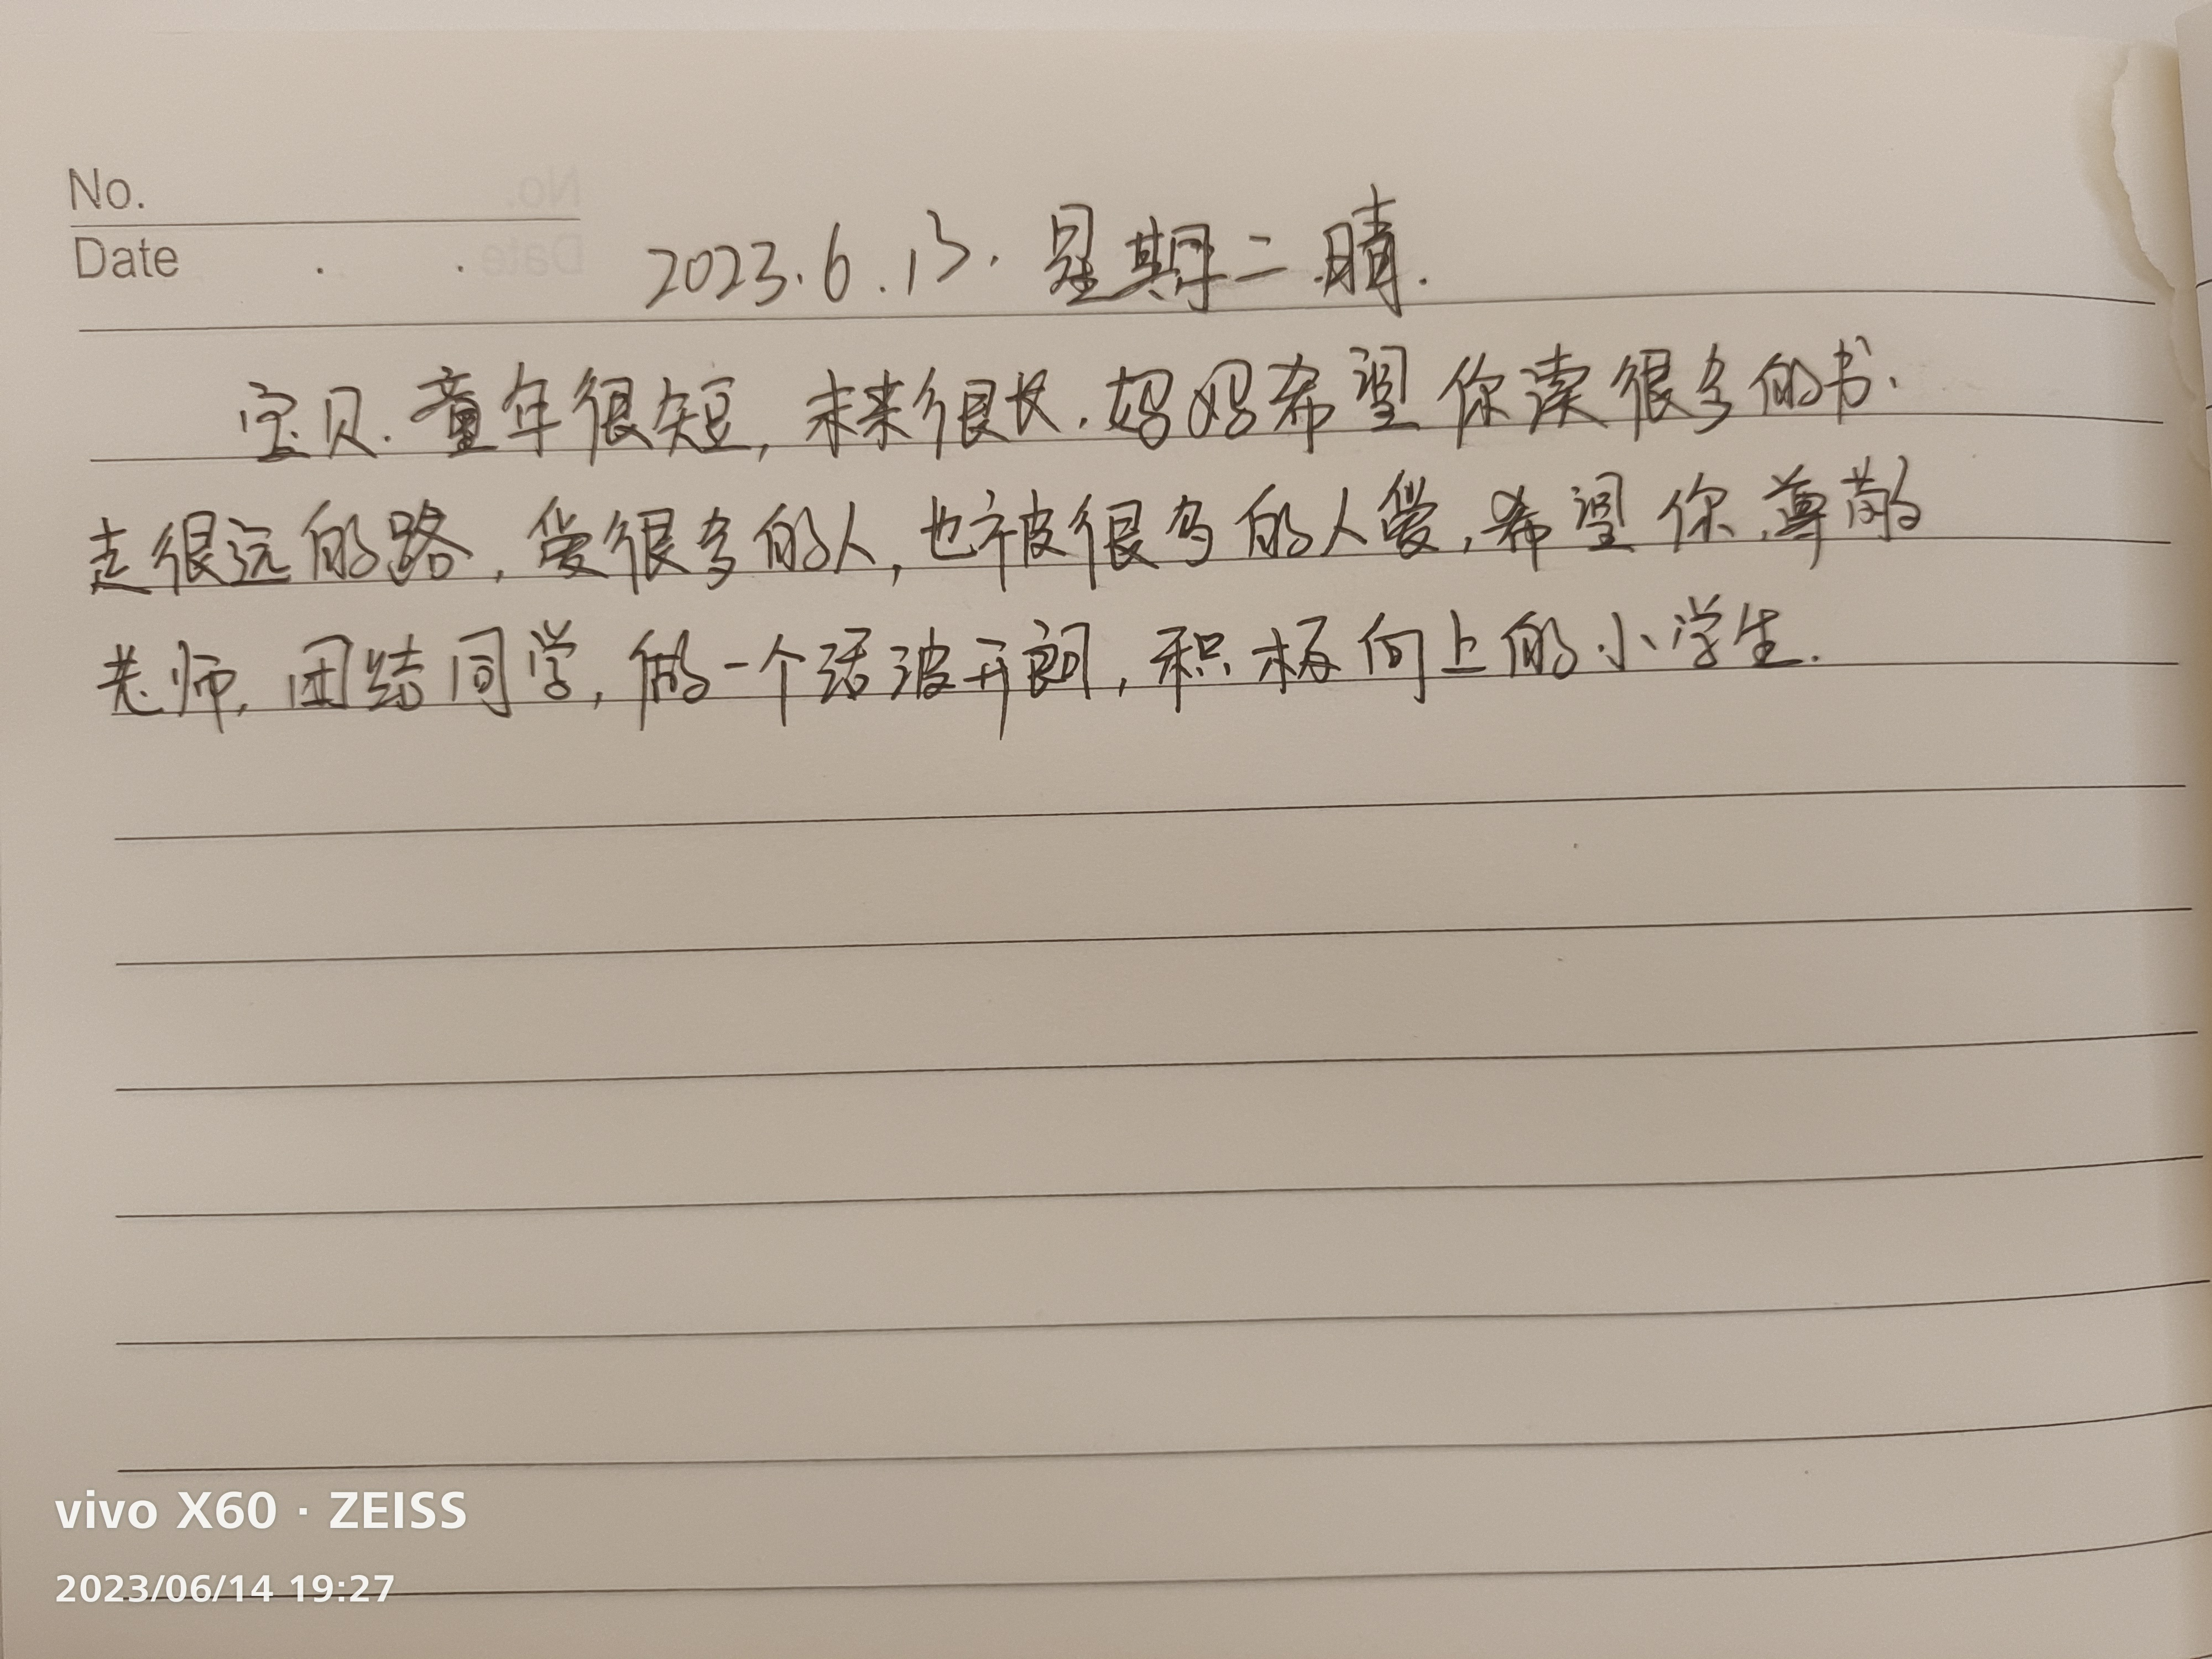 No.
Date . .
2023.6.13. 星期二.晴.
宝贝.童年很短,未来很长.妈妈希望你读很多的书.
走很远的路,爱很多的人,也被很多的人爱,希望你尊敬
老师,团结同学,做一个活波开朗,积极向上的小学生.
vivo X60 · ZEISS
2023/06/14 19:27